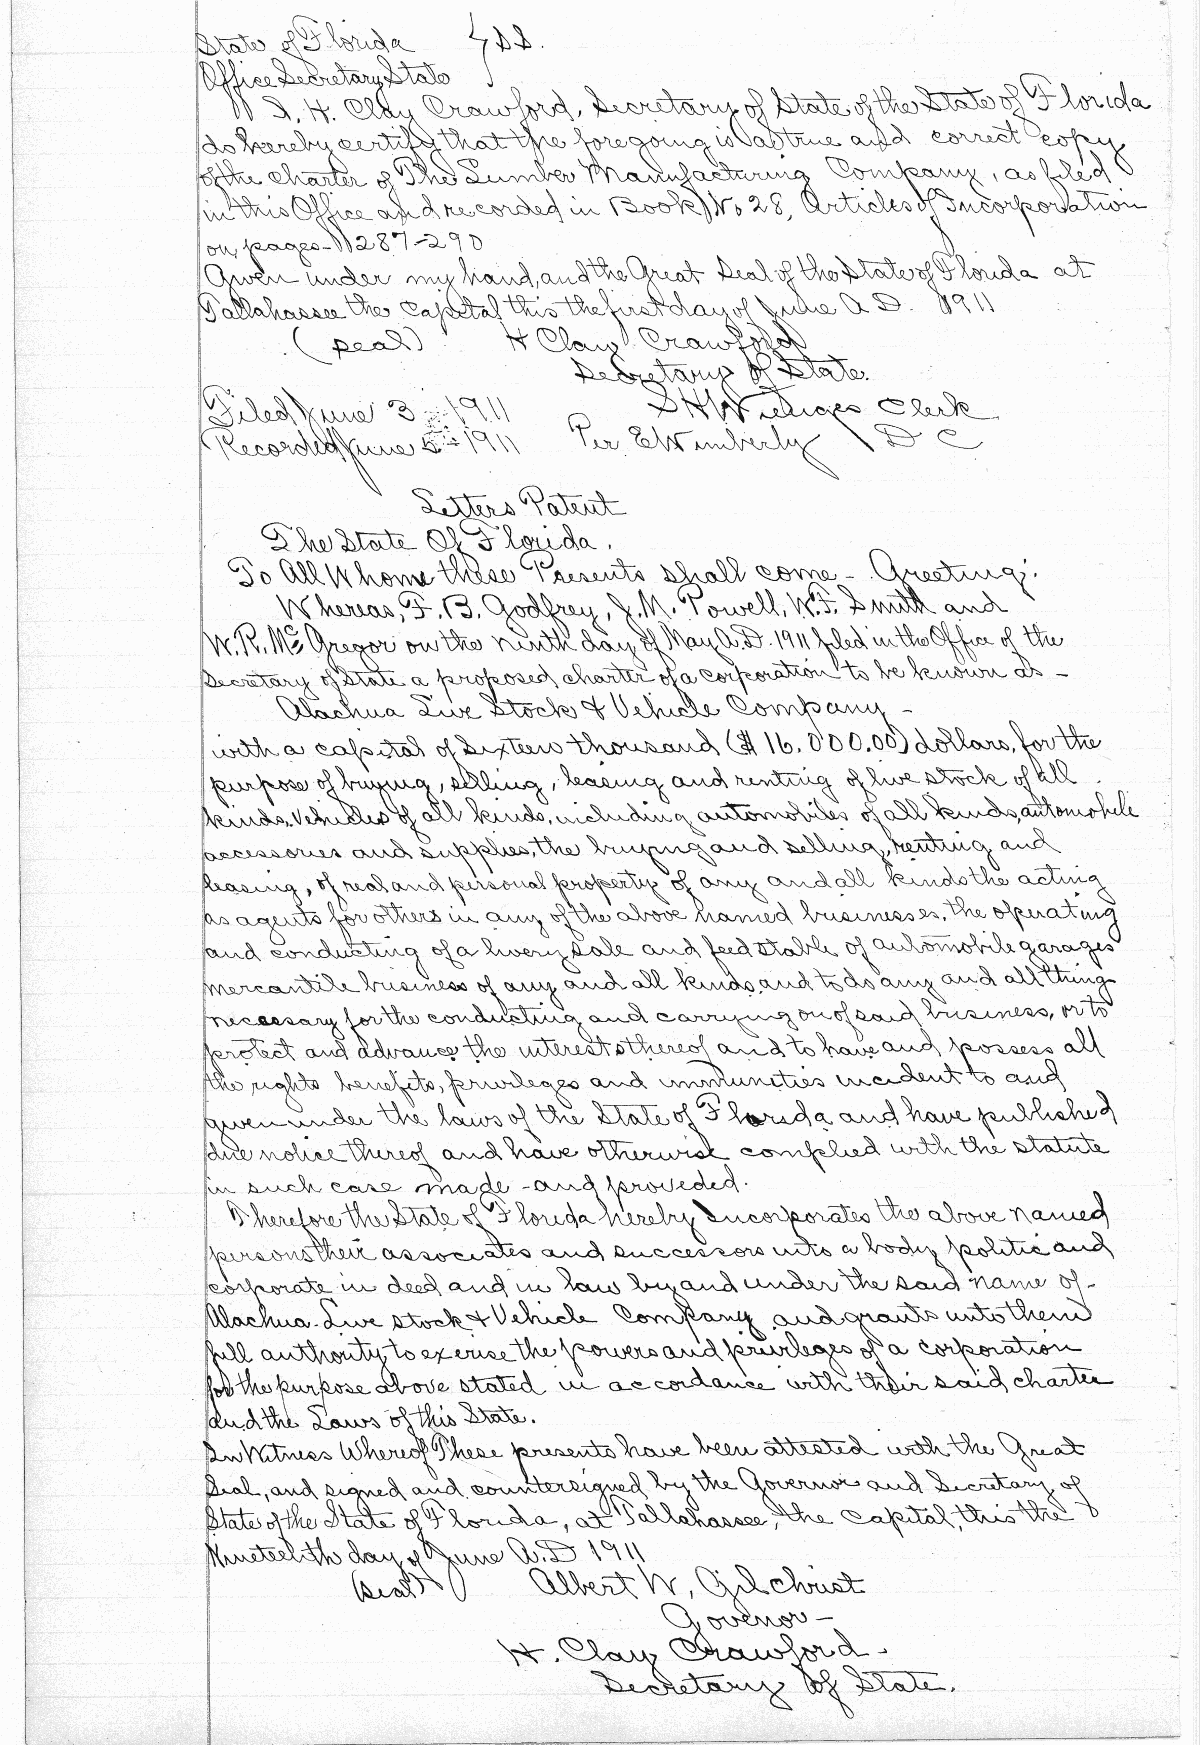 State of Florida } S.S.
Office Secretary State
I. H. Clay Crawford, Secretary of State of the State of Florida
do hereby certify that the foregoing is a true and correct copy
of the charter of The Lumber Manufacturing Company, as filed
in this Office and recorded in Book No 28, Articles of Incorporation
on pages - 287-290
Given under my hand, and the Great Seal of the State of Florida at
Tallahassee the capital this the first day of June A.D. 1911
(seal) H Clay Crawford
Secretary of State.
Filed June 3 - 1911 S H Wienges Clerk
Recorded June 5 - 1911 Per E Wimberly D C
Letters Patent
The State Of Florida.
To All Whom these Presents shall come - Greeting:
Whereas, F. B. Godfrey, J. M. Powell, W. F. Smith and
W. R. McGregor on the ninth day of May A.D. 1911 filed in the Office of the
Secretary of State a proposed charter of a corporation to be known as -
Alachua Live Stock & Vehicle Company -
with a capital of Sixteen thousand ($16.000.00) dollars, for the
purpose of buying, selling, leasing and renting of live stock of all
kinds. Vehicles of all kinds, including automobiles of all kinds, automobile
accessories and supplies, the buying and selling, renting and
leasing, of real and personal property of any and all kinds the acting
as agents for others in any of the above named businesses, the operating
and conducting of a livery sale and feed stable of automobile garages
mercantile business of any and all kinds and to do any and all thing
necessary for the conducting and carrying on of said business, or to
protect and advance the interests thereof and to have and possess all
the rights benefits, privileges and immunities incident to and
given under the laws of the State of Florida and have published
due notice thereof and have otherwise complied with the statute
in such case made - and provided.
Therefore the State of Florida hereby Incorporates the above named
persons their associates and successors into a body politic and
corporate in deed and in law by and under the said name of -
Alachua Live stock & Vehicle Company and grants unto them
full authority to exercise the powers and privileges of a corporation
for the purpose above stated in accordance with their said charter
and the Laws of this State.
In Witness Whereof These presents have been attested with the Great
Seal, and signed and countersigned by the Governor and Secretary of
State of the State of Florida, at Tallahassee, the capital, this the
Nineteenth day of June A.D 1911
(seal) Albert W. Gilchrist
Govenor -
H. Clay Crawford -
Secretary Of State.